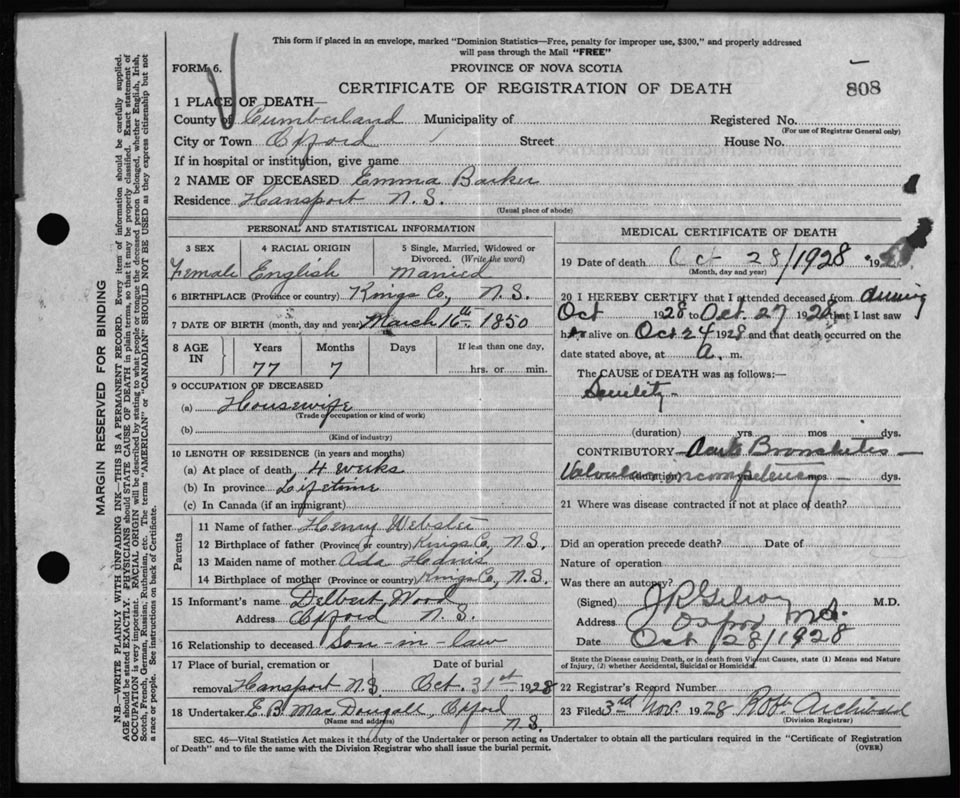 This form if placed in an envelope, marked "Dominion Statistics—Free, penalty for improper use, $300," and properly addressed
will pass through the Mail "FREE"
FORM 6.
PROVINCE OF NOVA SCOTIA
CERTIFICATE OF REGISTRATION OF DEATH
808
1 PLACE OF DEATH—
County of Cumberland Municipality of Registered No.
(For use of Registrar General only)
City or Town Oxford Street House No.
If in hospital or institution, give name
2 NAME OF DECEASED Emma Barker
Residence Hansport N.S.
(Usual place of abode)
PERSONAL AND STATISTICAL INFORMATION
3 SEX 4 RACIAL ORIGIN 5 Single, Married, Widowed or
Divorced. (Write the word)
Female English Married
6 BIRTHPLACE (Province or country) Kings Co., N.S.
7 DATE OF BIRTH (month, day and year) March 16th 1850
8 AGE IN Years Months Days If less than one day,
77 7 hrs. or min.
9 OCCUPATION OF DECEASED
(a) Housewife
(Trade occupation or kind of work)
(b)
(Kind of industry)
10 LENGTH OF RESIDENCE (in years and months)
(a) At place of death 4 weeks
(b) In province Lifetime
(c) In Canada (if an immigrant)
Parents
11 Name of father Henry Webster
12 Birthplace of father (Province or country) Kings Co, N.S.
13 Maiden name of mother Ada Harris
14 Birthplace of mother (Province or country) Kings Co, N.S.
15 Informant's name Delbert Wood
Address Oxford N.S.
16 Relationship to deceased Son-in-law
17 Place of burial, cremation or Date of burial
removal Hansport N.S. Oct. 31st 1928
18 Undertaker E. B. MacDougall, Oxford
(Name and address) N.S.
MEDICAL CERTIFICATE OF DEATH
19 Date of death Oct 28/1928 19
(Month, day and year)
20 I HEREBY CERTIFY that I attended deceased from during
Oct 1928 to Oct. 27 1928 that I last saw
her alive on Oct 24 1928 and that death occurred on the
date stated above, at a. m.
The CAUSE of DEATH was as follows:—
Senility
(duration) yrs mos dys.
CONTRIBUTORY Acute Bronchitis
Valvular incompetency
(duration) yrs mos dys.
21 Where was disease contracted if not at place of death?
Did an operation precede death? Date of
Nature of operation
Was there an autopsy?
(Signed) J R Gilroy M.D.
Address Oxford N.S.
Date Oct 28/1928
State the Disease causing Death, or in death from Violent Causes, state (1) Means and Nature
of Injury, (2) whether Accidental, Suicidal or Homicidal.
22 Registrar's Record Number
23 Filed 3rd Nov. 1928 Robt. Archibald
(Division Registrar)
SEC. 45—Vital Statistics Act makes it the duty of the Undertaker or person acting as Undertaker to obtain all the particulars required in the "Certificate of Registration
of Death" and to file the same with the Division Registrar who shall issue the burial permit.
(OVER)
MARGIN RESERVED FOR BINDING
N.B.—WRITE PLAINLY WITH UNFADING INK—THIS IS A PERMANENT RECORD. Every item of information should be carefully supplied.
AGE should be stated EXACTLY. PHYSICIANS should STATE CAUSE OF DEATH in plain terms, so that it may be properly classified. Exact statement of
OCCUPATION is very important. RACIAL ORIGIN will be described by stating to what people or tongue the deceased person belonged, whether English, Irish,
Scotch, French, German, Russian, Ruthenian, etc. The terms "AMERICAN" or "CANADIAN" SHOULD NOT BE USED as they express citizenship but not
a race or people. See instructions on back of Certificate.